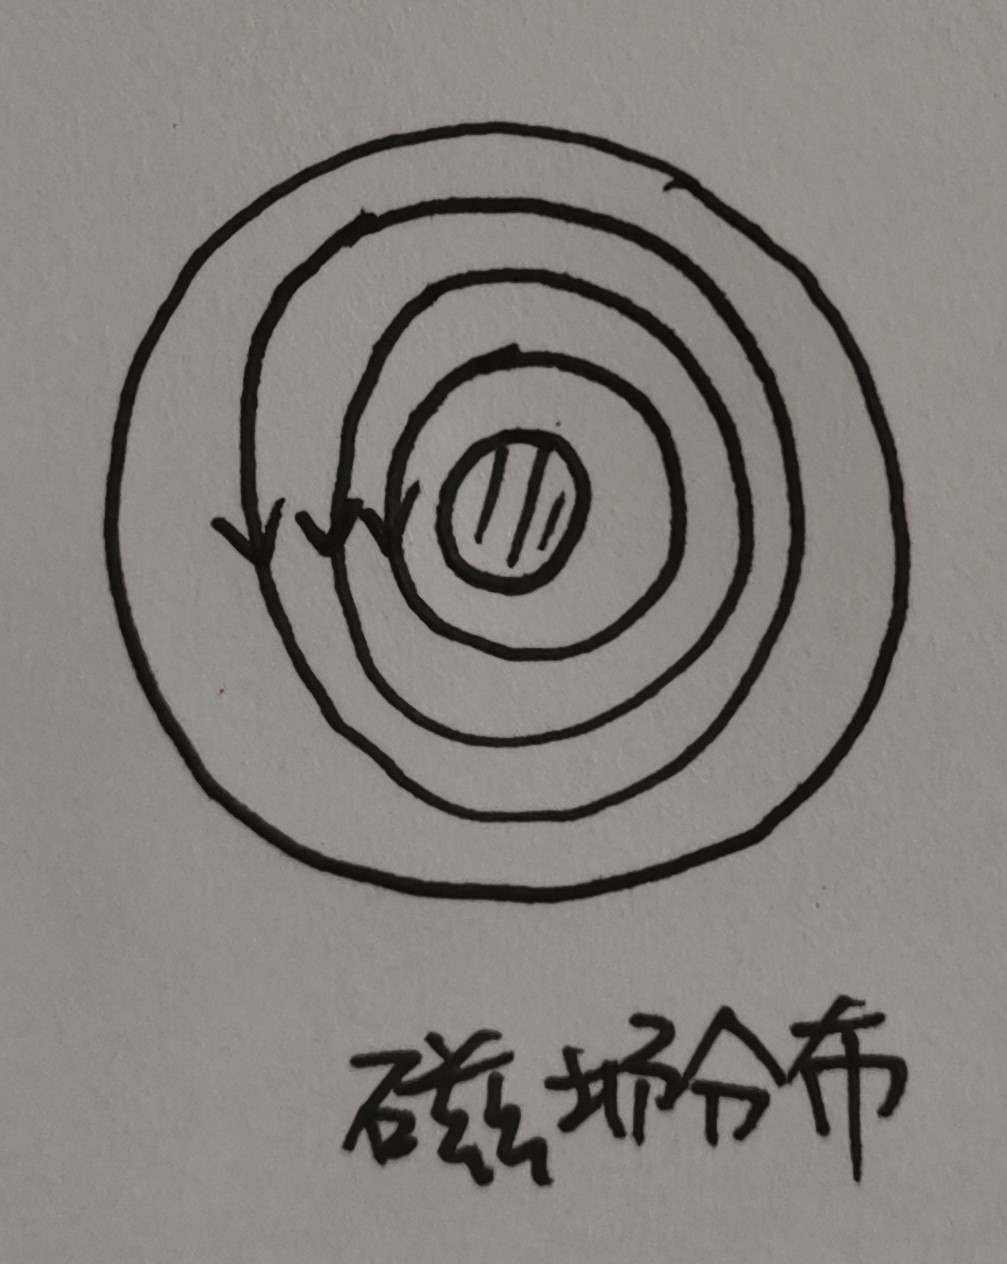 磁场分布